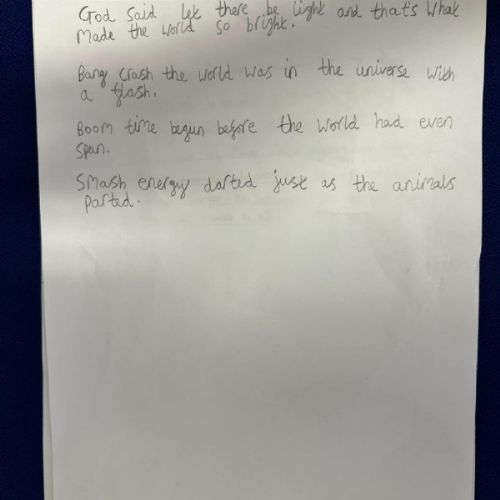 God said let there be light and that's what
Made the world so bright.
Bang crash the world was in the universe with
a flash.
Boom time begun before the world had even
span.
Smash energy darted just as the animals
parted.